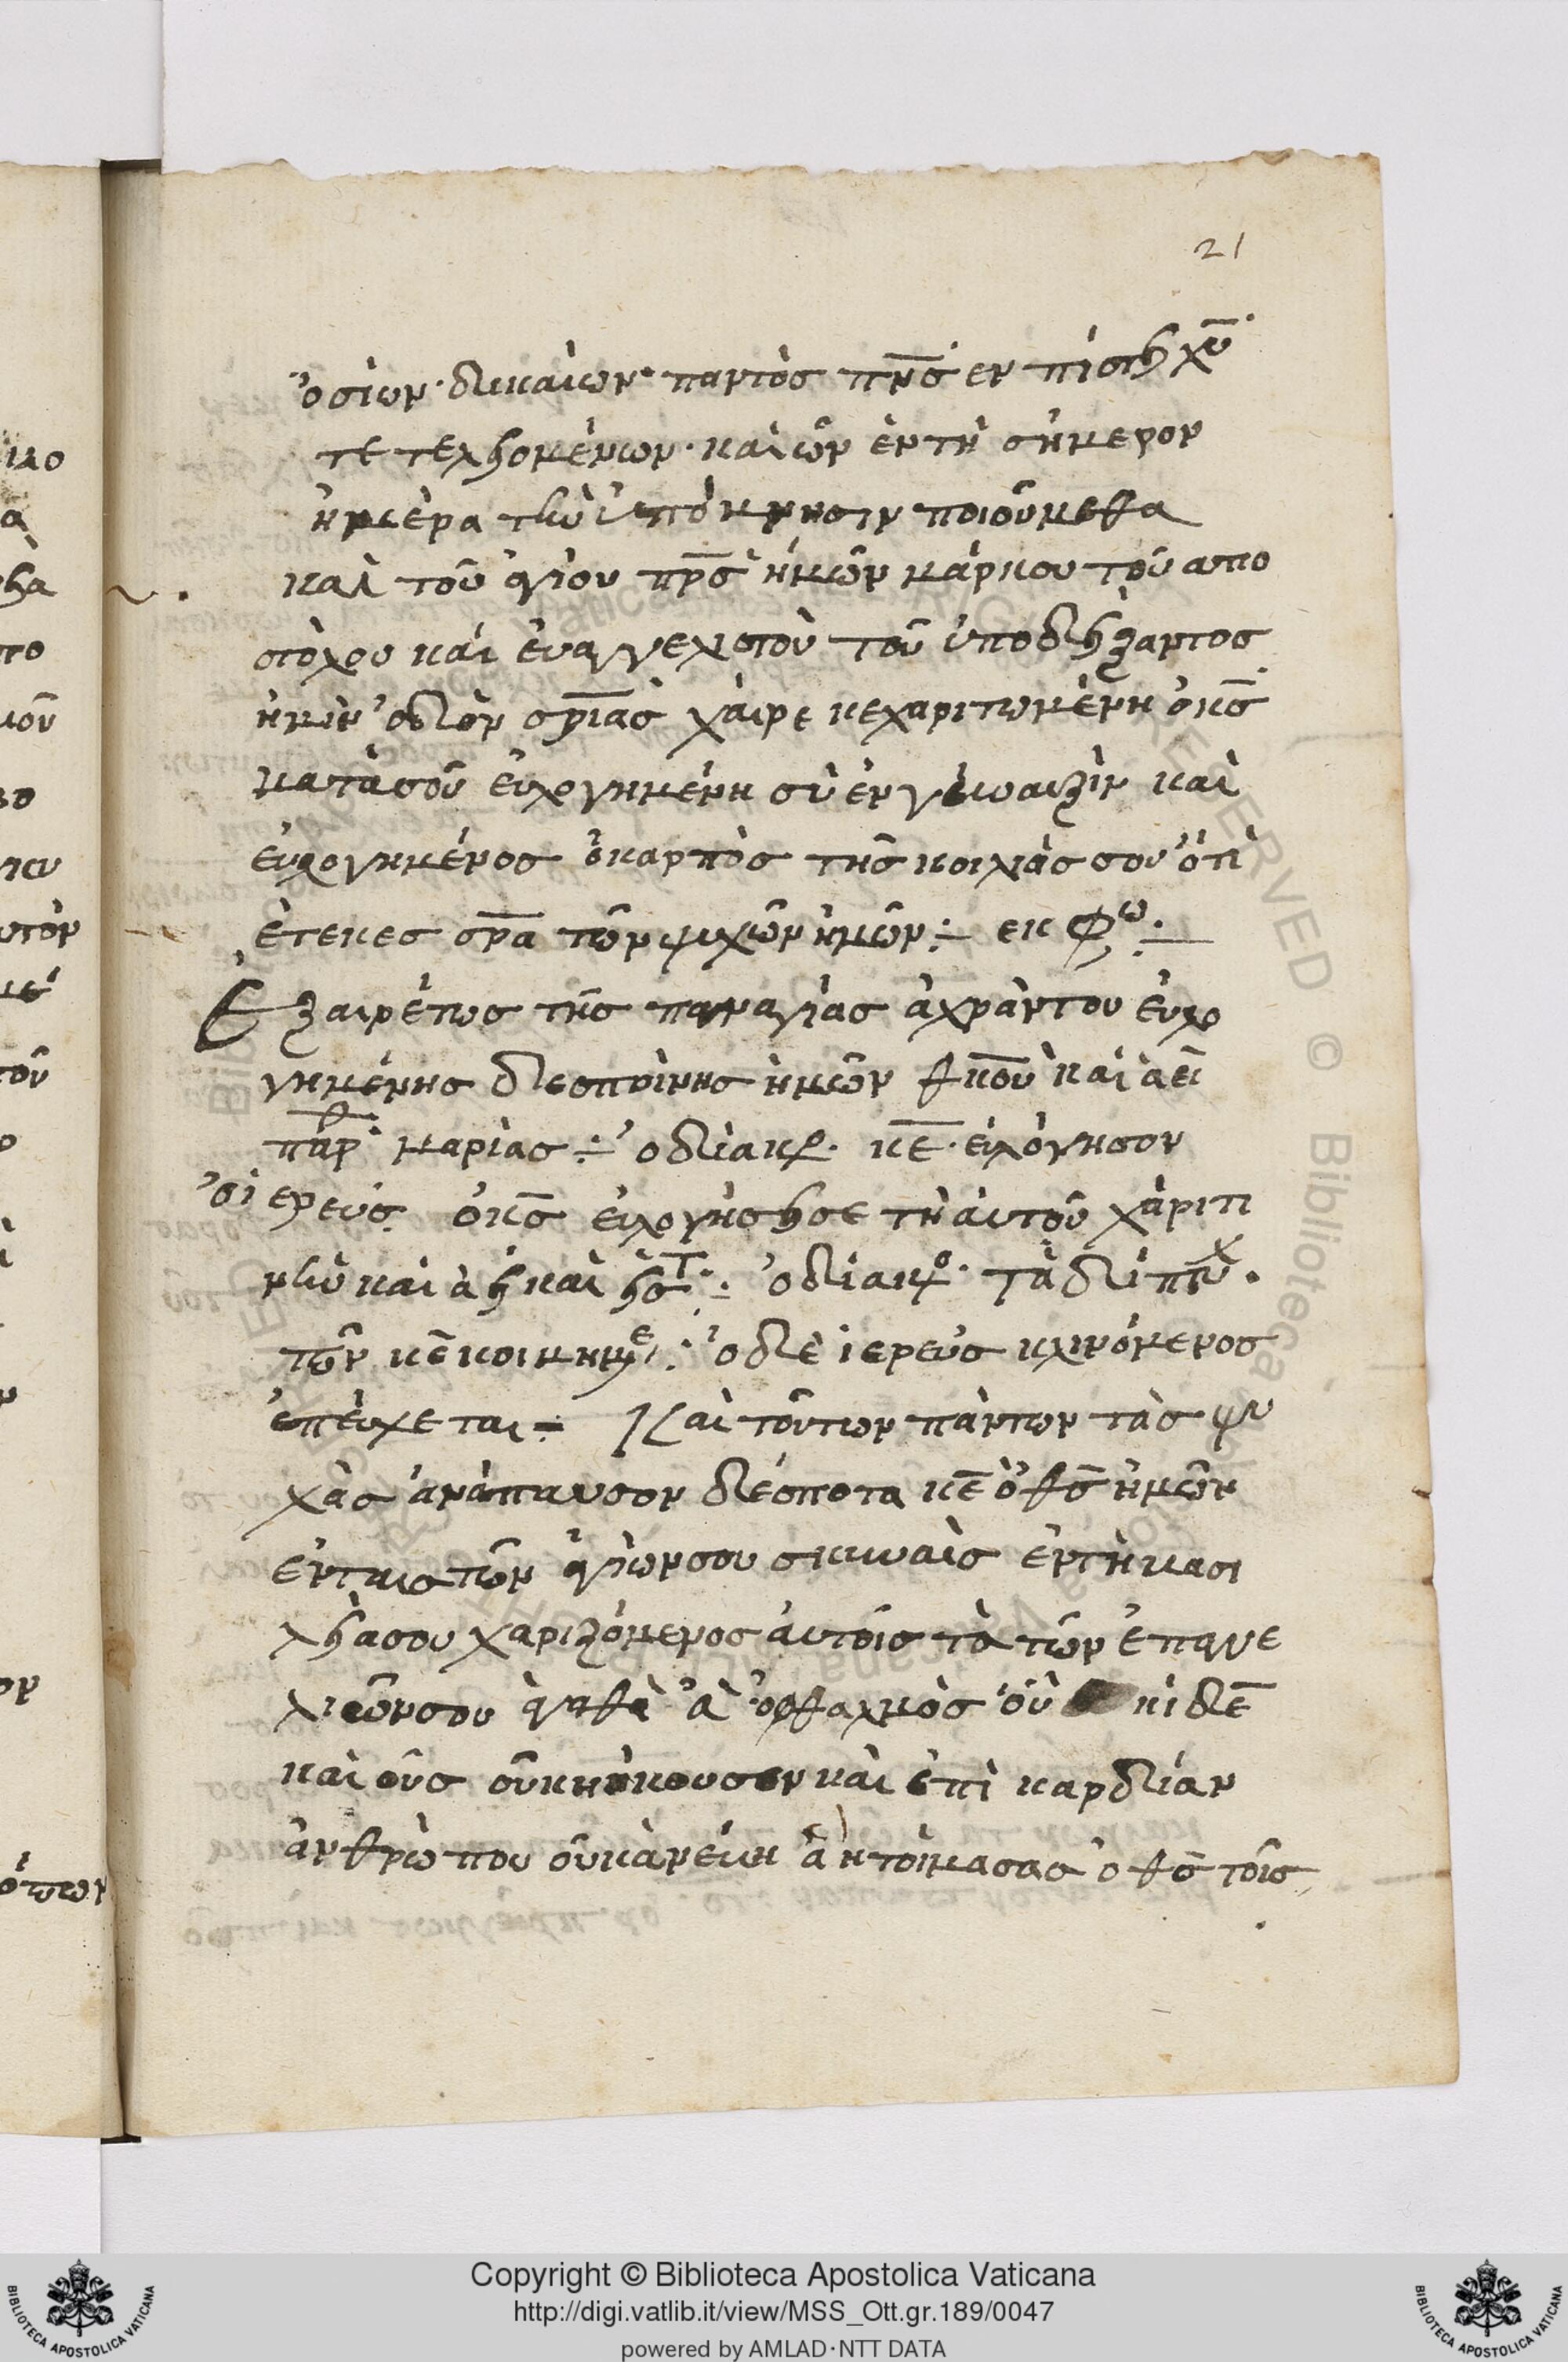 21
ὁσίων· δικαίων· παντὸς πν̅ς· ἐν πίστει χυ̅·
τετελειομένων· καὶ ὧν ἐν τῆ σήμερον
ἡμέρα τὴν ὑπόμνησιν ποιούμεθα
καὶ τοῦ ἁγίου πρ̅ς ἡμῶν μάρκου τοῦ ἀπο
στόλου καὶ ἐυαγγελιστοῦ τοῦ ὑποδείξαντος
ἡμῖν ὁδὸν σρ̅ιας χαῖρε κεχαριτωμένη ὁ κς̅
μετὰ σοῦ εὐλογημένη σὺ ἐν γυναιξὶν καὶ
εὐλογημένος ὁ καρπὸς τῆς κοιλίας σου ὅτι
ἔτεκες σρ̅α τῶν ψυχῶν ἡμῶν ÷ εκφω·
Ἐξαιρέτως τῆς παναγίας ἀχράντου εὐλο
γημένης δεσποίνης ἡμῶν θκ̅ου καὶ ἀει
παρθ· μαρίας ÷ ὁ διακ· κε̅· εὐλόγησον
ὁ ἱερεύς· ὁ κς̅ εὐλογήσει σε τῆ αὐτοῦ χάριτι
νῦν καὶ ἀεὶ καὶ εἰς τ· ὁ διακο· τὰ δίπτυχ·
τῶν κεκοιμημε· ὁ δὲ ἱερεὺς κλινόμενος
ἐπεύχεται ÷ Καὶ τούτων πάντων τὰς ψυ
χὰς ἀνάπαυσον δέσποτα κε̅ ὁ θς̅ ἡμῶν
ἐν ταις τῶν ἁγίων σου σκηναῖς ἐν τῆ βασι
λεία σου χαριζόμενος αὐτοῖς τὰ τῶν ἐπαγγε
λιῶν σου ἀγαθὰ ἃ ὀφθαλμὸς οὐκ ἰδε
καὶ οὖς οὐκ ἤκουσεν καὶ ἐπὶ καρδίαν
ἀνθρώπου οὐκ ἀνέβη ἃ ἡτοίμασας ὁ θς̅ τοῖς
Copyright © Biblioteca Apostolica Vaticana
http://digi.vatlib.it/view/MSS_Ott.gr.189/0047
powered by AMLAD·NTT DATA